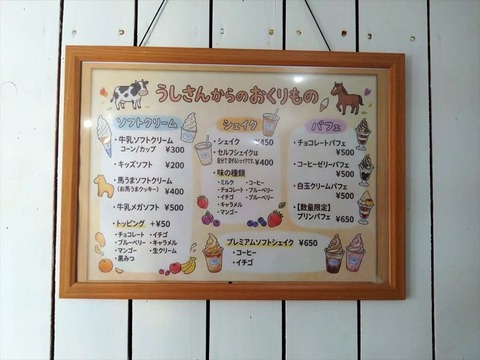 うしさんからのおくりもの
ソフトクリーム
・牛乳ソフトクリーム
コーン/カップ ¥300
・キッズソフト ¥200
・馬うまソフトクリーム
(お馬うまクッキー) ¥400
・牛乳メガソフト ¥500
・トッピング +¥50
・チョコレート ・イチゴ
・ブルーベリー ・キャラメル
・マンゴー ・生クリーム
・黒みつ
シェイク
・シェイク ¥450
・セルフシェイク
¥400
・味の種類
・ミルク ・コーヒー
・チョコレート ・ブルーベリー
・イチゴ ・ブルーベリー
・キャラメル
・マンゴー
パフェ
・チョコレートパフェ
¥500
・コーヒーゼリーパフェ
¥500
・白玉クリームパフェ
¥500
・【数量限定】
プリンパフェ ¥650
プレミアムソフトシェイク ¥650
・コーヒー
・イチゴ